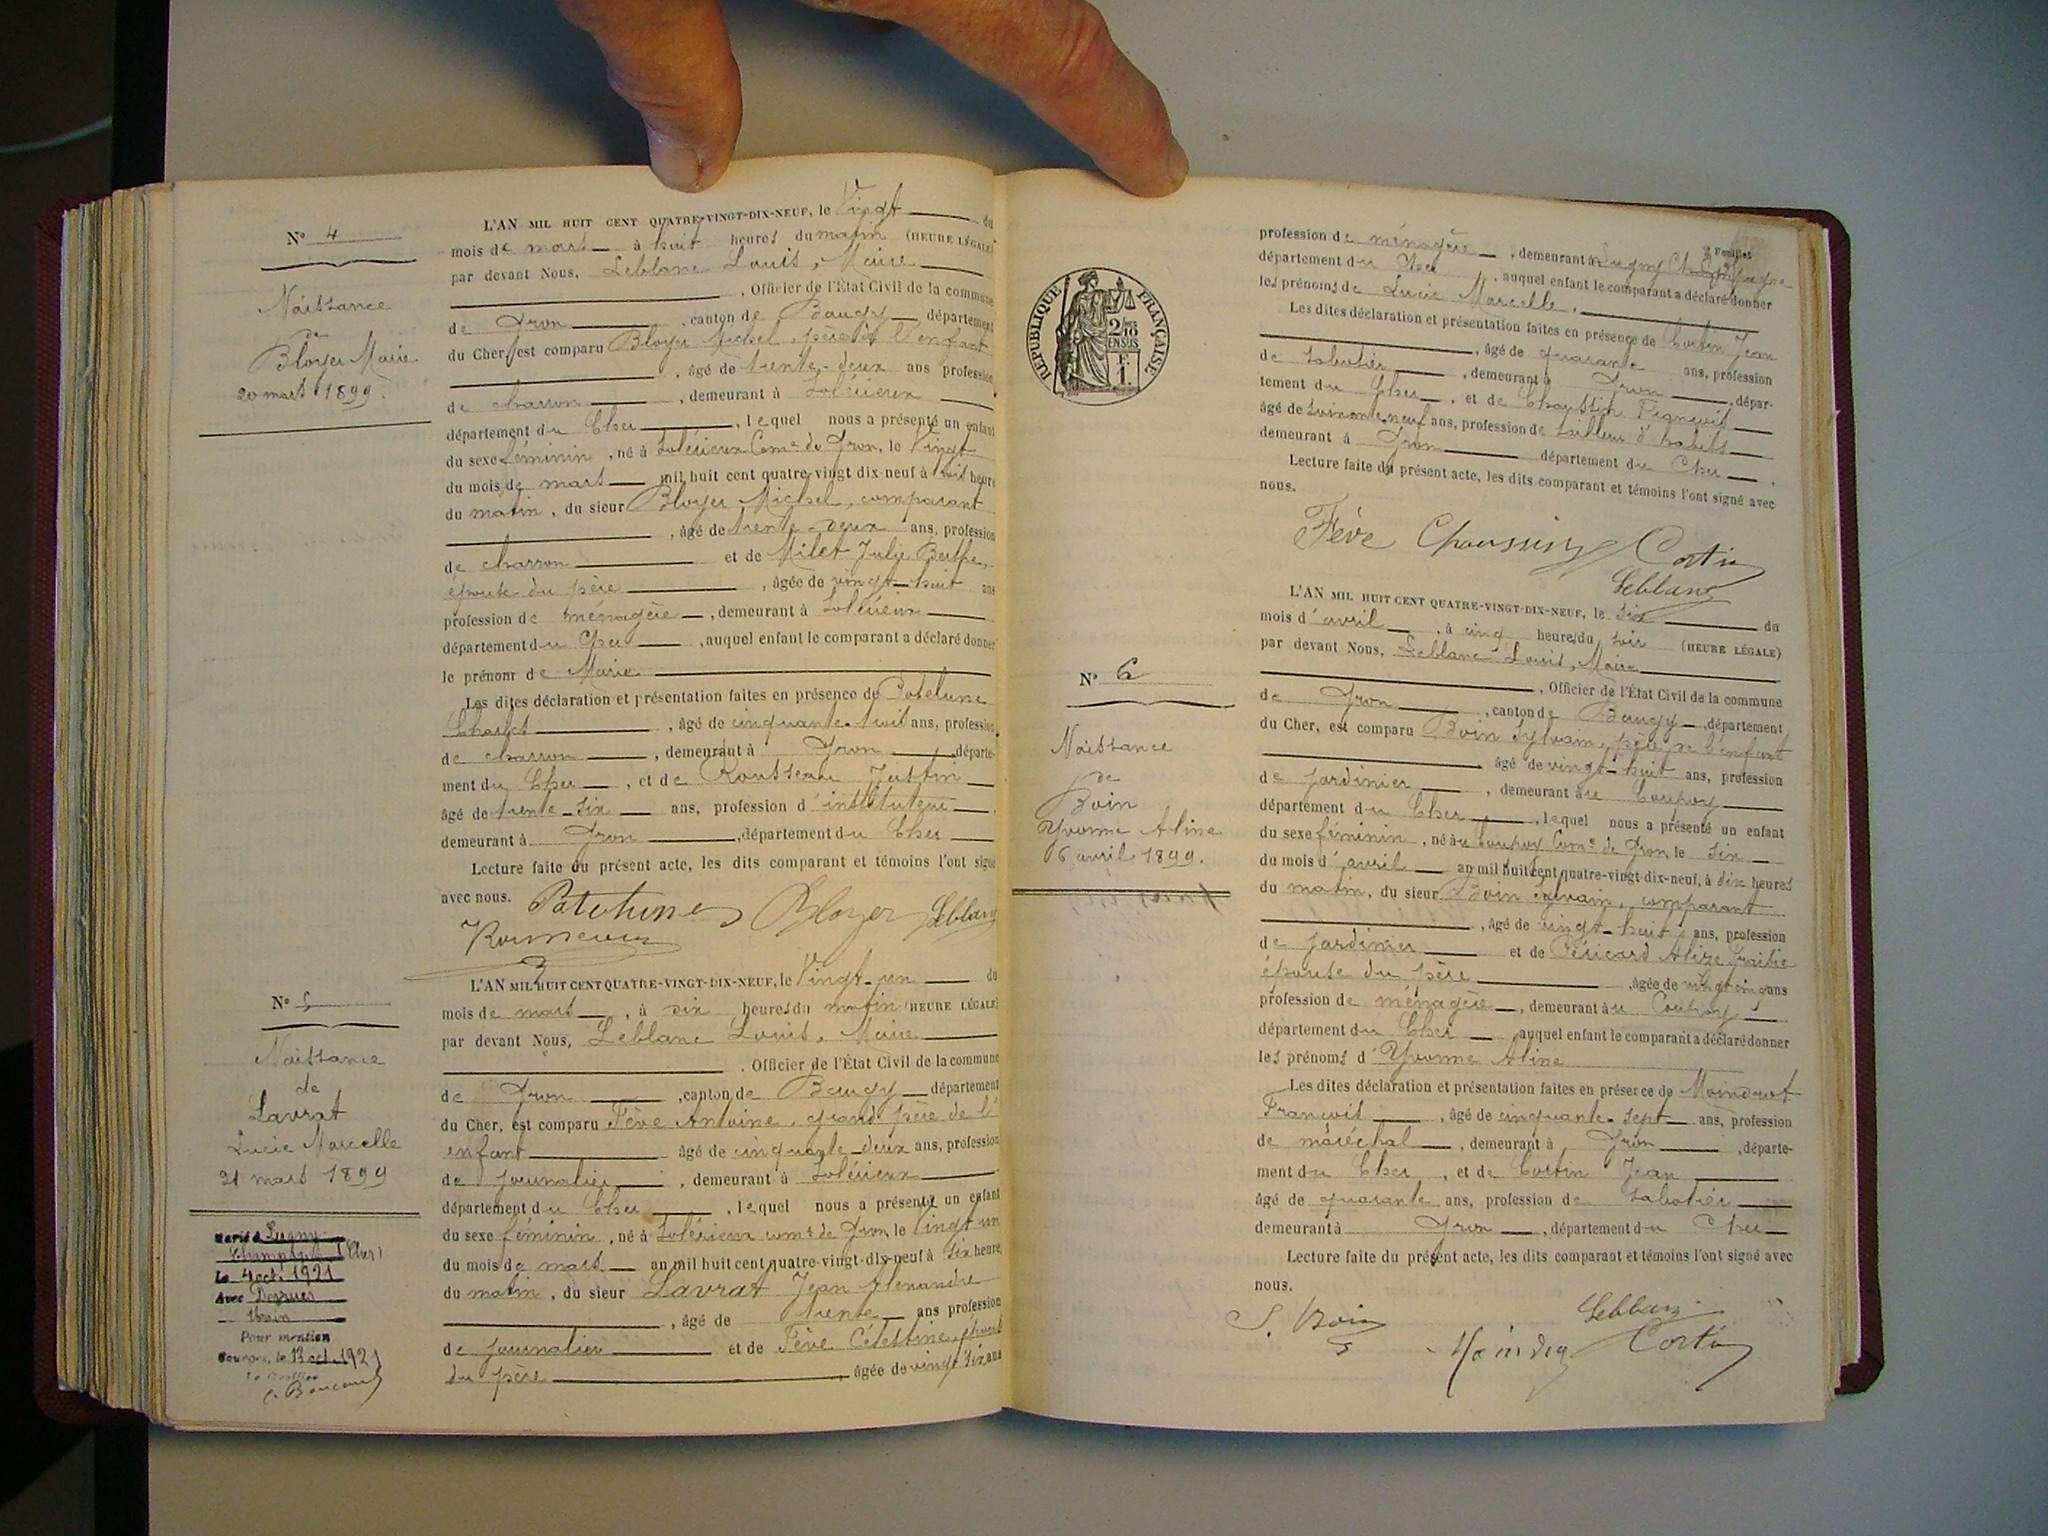 N° 4
Naissance
de
Bloyer Marie
20 mars 1899.
L'AN MIL HUIT CENT QUATRE-VINGT-DIX-NEUF, le Vingt du
mois de mars à huit heures du matin (HEURE LÉGALE)
par devant Nous, Leblanc Louis, Maire
, Officier de l'État Civil de la commune
de Gron , canton de Baugy département
du Cher, est comparu Bloyer Michel, père de l'enfant
, âgé de trente-deux ans profession
de charron , demeurant à Solérieux
département du Cher , lequel nous a présenté un enfant
du sexe féminin , né à Solérieux Comne de Gron, le Vingt
du mois de mars mil huit cent quatre-vingt dix-neuf à six heure
du matin , du sieur Bloyer Michel, comparant
, âgé de trente-deux ans, profession
de charron et de Milet Julie Berthe,
épouse du père , âgée de vingt-huit ans
profession de ménagère , demeurant à Solérieux
département du Cher , auquel enfant le comparant a déclaré donner
le prénom de Marie
Les dites déclaration et présentation faites en présence de Patelune
Charles , âgé de cinquante-trois ans, profession
de charron , demeurant à Gron , départe-
ment du Cher , et de Rousseau Justin
âgé de trente-six ans, profession d'instituteur
demeurant à Gron , département du Cher
Lecture faite du présent acte, les dits comparant et témoins l'ont signé
avec nous. Bloyer Leblanc
N° 5
Naissance
de
Lavrat
Lucie Marcelle
21 mars 1899
Marié à Lugny
Champagne (Cher)
Le 4 oct. 1921
Avec
Pour mention
Bourges, le 13 oct. 1921
L'AN MIL HUIT CENT QUATRE-VINGT-DIX-NEUF, le Vingt-un du
mois de mars , à dix heures du matin (HEURE LÉGALE)
par devant Nous, Leblanc Louis, Maire
, Officier de l'État Civil de la commune
de Gron , canton de Baugy département
du Cher, est comparu Fève Antoine, grand père de l'
enfant âgé de cinquante-deux ans, profession
de journalier , demeurant à Solérieux
département du Cher , lequel nous a présenté un enfant
du sexe féminin , né à Solérieux comne de Gron, le Vingt un
du mois de mars an mil huit cent quatre-vingt-dix-neuf à six heure
du matin , du sieur Lavrat Jean Alexandre
, âgé de trente ans profession
de journalier et de Fève Célestine, épouse
du père , âgée de vingt six ans
2 Feuillet
profession de ménagère , demeurant à Lugny Champagne
département du Cher , auquel enfant le comparant a déclaré donner
les prénoms de Lucie Marcelle.
Les dites déclaration et présentation faites en présence de Cortin Jean
, âgé de quarante ans, profession
de sabotier , demeurant à Gron , dépar-
tement du Cher , et de
âgé de soixante neuf ans, profession de tailleur d'habits
demeurant à Gron département du Cher .
Lecture faite du présent acte, les dits comparant et témoins l'ont signé avec
nous.
Fève Cortin
Leblanc
RÉPUBLIQUE FRANÇAISE
2/10
EN SUS
1 F.
N° 6
Naissance
de
Boin
Yvonne Aline
6 avril 1899.
L'AN MIL HUIT CENT QUATRE-VINGT-DIX-NEUF, le six du
mois d'avril , à cinq heures du soir (HEURE LÉGALE)
par devant Nous, Leblanc Louis, Maire
, Officier de l'État Civil de la commune
de Gron , canton de Baugy , département
du Cher, est comparu Boin Sylvain, père de l'enfant
âgé de vingt-huit ans, profession
de jardinier , demeurant au Coupoy
département du Cher , lequel nous a présenté un enfant
du sexe féminin , né au Coupoy Comne de Gron, le six
du mois d'avril an mil huit cent quatre-vingt-dix-neuf, à dix heures
du matin, du sieur Boin Sylvain, comparant
, âgé de vingt-huit ans, profession
de jardinier et de Péricard Alize
épouse du père , âgée de vingt cinq ans
profession de ménagère , demeurant au Coupoy
département du Cher , auquel enfant le comparant a déclaré donner
les prénoms d'Yvonne Aline
Les dites déclaration et présentation faites en présence de Moindrot
François , âgé de cinquante-sept ans, profession
de maréchal , demeurant à Gron , départe-
ment du Cher , et de Cortin Jean
âgé de quarante ans, profession de sabotier
demeurant à Gron , département du Cher
Lecture faite du présent acte, les dits comparant et témoins l'ont signé avec
nous.
S. Boin Leblanc
Cortin